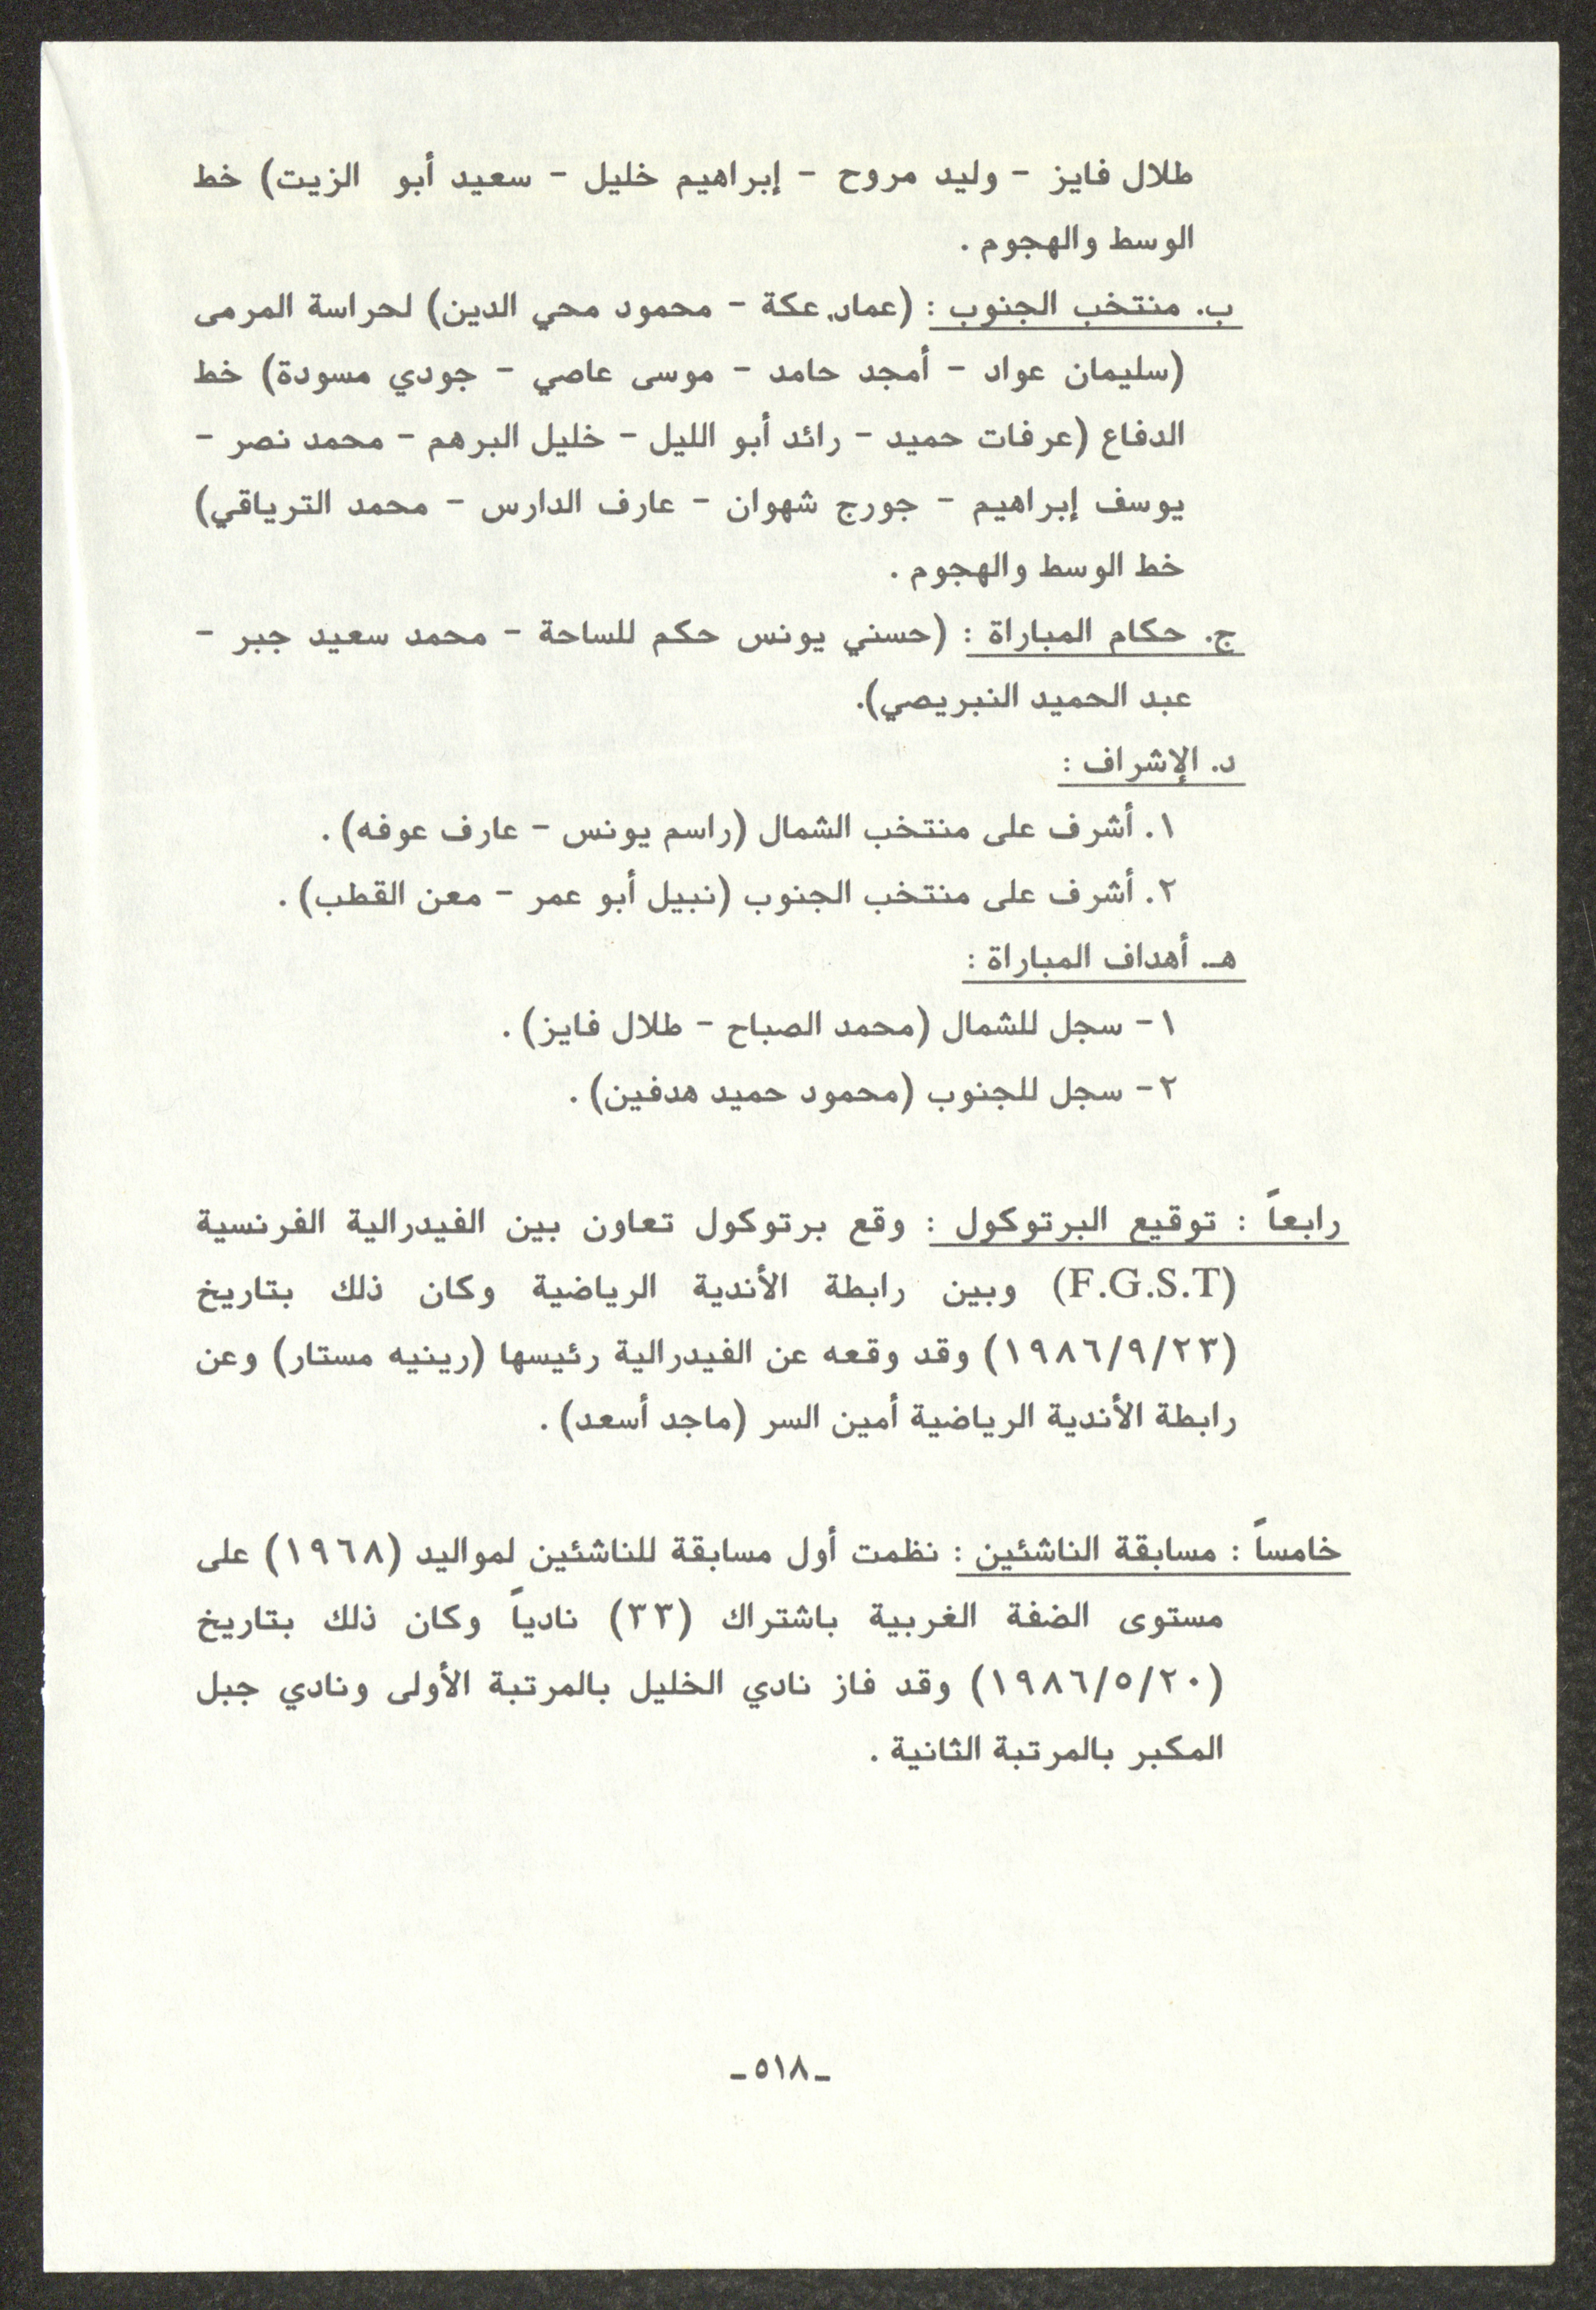 طلال فايز - وليد مروح - إبراهيم خليل - سعيد أبو الزيت) خط
الوسط والهجوم .
ب. منتخب الجنوب : (عماد عكة - محمود محي الدين) لحراسة المرمى
(سليمان عواد - أمجد حامد - موسى عاصي - جودي مسودة) خط
الدفاع (عرفات حميد - رائد أبو الليل - خليل البرهم - محمد نصر -
يوسف إبراهيم - جورج شهوان - عارف الدارس - محمد الترياقي)
خط الوسط والهجوم .
ج. حكام المباراة : (حسني يونس حكم للساحة - محمد سعيد جبر -
عبد الحميد النبريصي).
د. الإشراف :
١. أشرف على منتخب الشمال (راسم يونس - عارف عوفه) .
٢. أشرف على منتخب الجنوب (نبيل أبو عمر - معن القطب) .
هـ. أهداف المباراة :
١- سجل للشمال (محمد الصباح - طلال فايز) .
٢- سجل للجنوب (محمود حميد هدفين) .
رابعاً : توقيع البرتوكول : وقع برتوكول تعاون بين الفيدرالية الفرنسية
(F.G.S.T) وبين رابطة الأندية الرياضية وكان ذلك بتاريخ
(١٩٨٦/٩/٢٣) وقد وقعه عن الفيدرالية رئيسها (رينيه مستار) وعن
رابطة الأندية الرياضية أمين السر (ماجد أسعد) .
خامساً : مسابقة الناشئين : نظمت أول مسابقة للناشئين لمواليد (١٩٦٨) على
مستوى الضفة الغربية باشتراك (٣٣) نادياً وكان ذلك بتاريخ
(١٩٨٦/٥/٢٠) وقد فاز نادي الخليل بالمرتبة الأولى ونادي جبل
المكبر بالمرتبة الثانية .
-٥١٨-